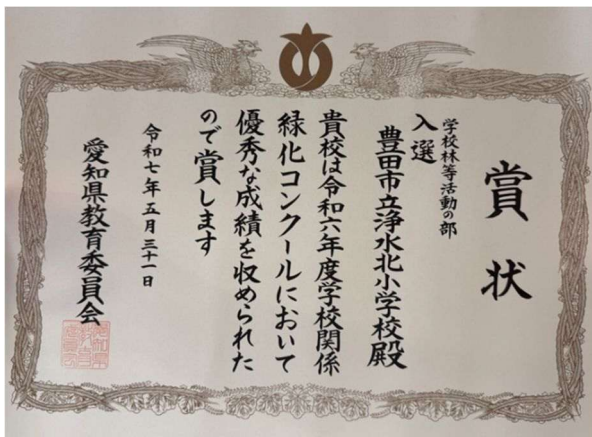 賞状
学校林等活動の部
入選
豊田市立浄水北小学校殿
貴校は令和六年度学校関係
緑化コンクールにおいて
優秀な成績を収められた
ので賞します
令和七年五月三十一日
愛知県教育委員会